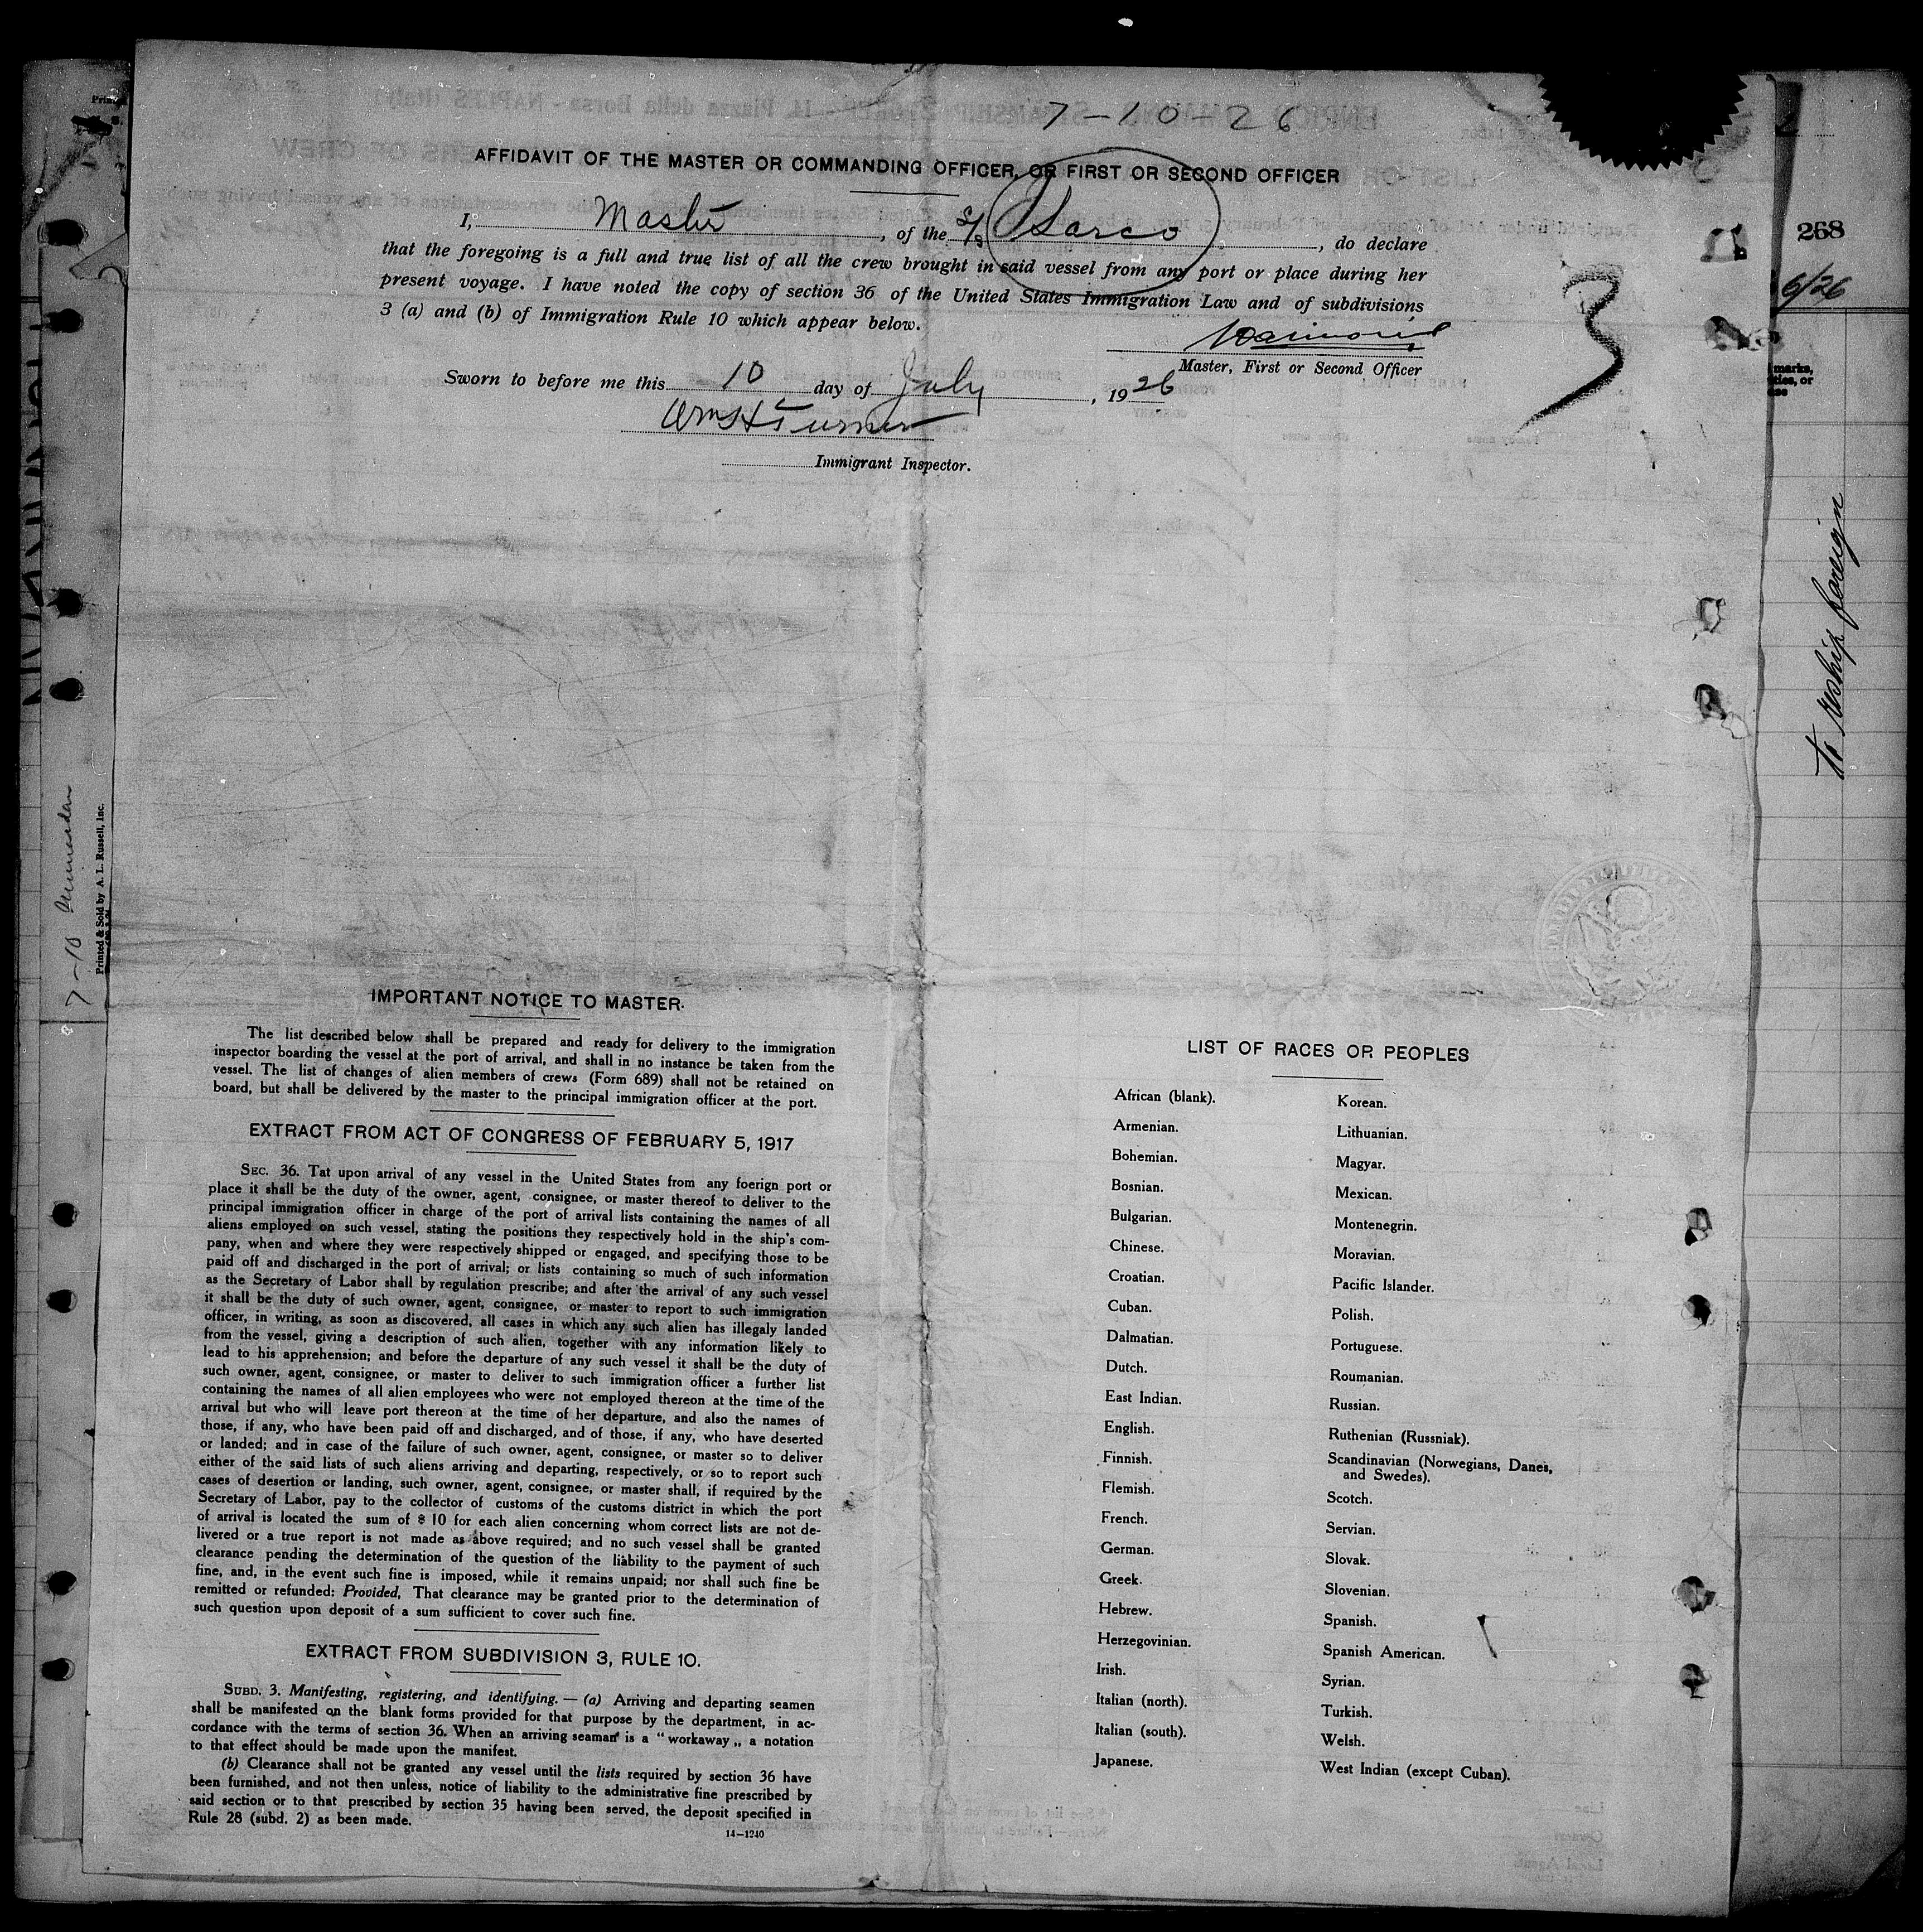 7-10-26
AFFIDAVIT OF THE MASTER OR COMMANDING OFFICER, OR FIRST OR SECOND OFFICER
I, Master, of the S/S, do declare
that the foregoing is a full and true list of all the crew brought in said vessel from any port or place during her
present voyage. I have noted the copy of section 36 of the United States Immigration Law and of subdivisions
3 (a) and (b) of Immigration Rule 10 which appear below.
Master, First or Second Officer
Sworn to before me this 10 day of July, 1926
Wm H Turner
Immigrant Inspector.
3
268
6/26
marks,
ties, or
ase
to reship foreign
7-10
Printed & Sold by A. L. Russell, Inc.
IMPORTANT NOTICE TO MASTER.
The list described below shall be prepared and ready for delivery to the immigration
inspector boarding the vessel at the port of arrival, and shall in no instance be taken from the
vessel. The list of changes of alien members of crews (Form 689) shall not be retained on
board, but shall be delivered by the master to the principal immigration officer at the port.
EXTRACT FROM ACT OF CONGRESS OF FEBRUARY 5, 1917
SEC. 36. Tat upon arrival of any vessel in the United States from any foerign port or
place it shall be the duty of the owner, agent, consignee, or master thereof to deliver to the
principal immigration officer in charge of the port of arrival lists containing the names of all
aliens employed on such vessel, stating the positions they respectively hold in the ship's com-
pany, when and where they were respectively shipped or engaged, and specifying those to be
paid off and discharged in the port of arrival; or lists containing so much of such information
as the Secretary of Labor shall by regulation prescribe; and after the arrival of any such vessel
it shall be the duty of such owner, agent, consignee, or master to report to such immigration
officer, in writing, as soon as discovered, all cases in which any such alien has illegaly landed
from the vessel, giving a description of such alien, together with any information likely to
lead to his apprehension; and before the departure of any such vessel it shall be the duty of
such owner, agent, consignee, or master to deliver to such immigration officer a further list
containing the names of all alien employees who were not employed thereon at the time of the
arrival but who will leave port thereon at the time of her departure, and also the names of
those, if any, who have been paid off and discharged, and of those, if any, who have deserted
or landed; and in case of the failure of such owner, agent, consignee, or master so to deliver
either of the said lists of such aliens arriving and departing, respectively, or so to report such
cases of desertion or landing, such owner, agent, consignee, or master shall, if required by the
Secretary of Labor, pay to the collector of customs of the customs district in which the port
of arrival is located the sum of $ 10 for each alien concerning whom correct lists are not de-
livered or a true report is not made as above required; and no such vessel shall be granted
clearance pending the determination of the question of the liability to the payment of such
fine, and, in the event such fine is imposed, while it remains unpaid; nor shall such fine be
remitted or refunded: Provided, That clearance may be granted prior to the determination of
such question upon deposit of a sum sufficient to cover such fine.
EXTRACT FROM SUBDIVISION 3, RULE 10.
SUBD. 3. Manifesting, registering, and identifying. — (a) Arriving and departing seamen
shall be manifested on the blank forms provided for that purpose by the department, in ac-
cordance with the terms of section 36. When an arriving seaman is a "workaway„ a notation
to that effect should be made upon the manifest.
(b) Clearance shall not be granted any vessel until the lists required by section 36 have
been furnished, and not then unless, notice of liability to the administrative fine prescribed by
said section or to that prescribed by section 35 having been served, the deposit specified in
Rule 28 (subd. 2) as been made.
14—1240
LIST OF RACES OR PEOPLES
African (blank).
Armenian.
Bohemian.
Bosnian.
Bulgarian.
Chinese.
Croatian.
Cuban.
Dalmatian.
Dutch.
East Indian.
English.
Finnish.
Flemish.
French.
German.
Greek.
Hebrew.
Herzegovinian.
Irish.
Italian (north).
Italian (south).
Japanese.
Korean.
Lithuanian.
Magyar.
Mexican.
Montenegrin.
Moravian.
Pacific Islander.
Polish.
Portuguese.
Roumanian.
Russian.
Ruthenian (Russniak).
Scandinavian (Norwegians, Danes,
and Swedes).
Scotch.
Servian.
Slovak.
Slovenian.
Spanish.
Spanish American.
Syrian.
Turkish.
Welsh.
West Indian (except Cuban).